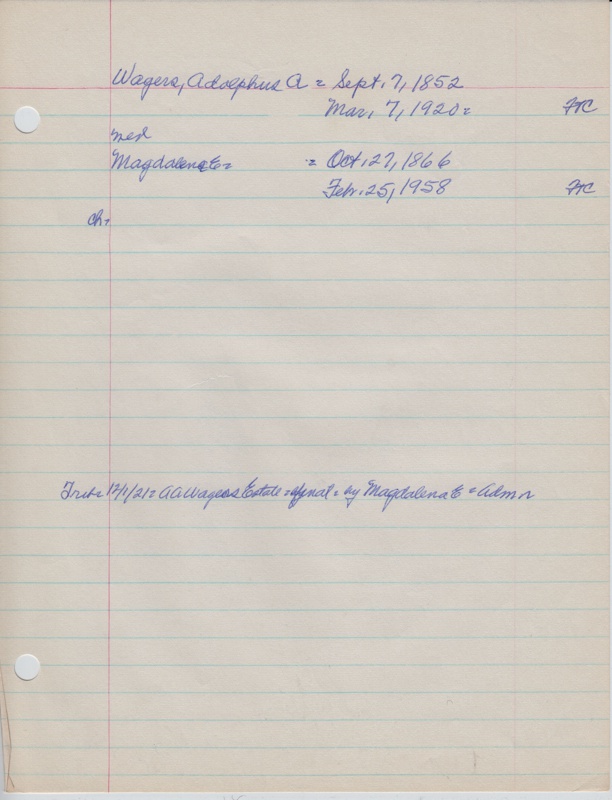 Wagers, Adolphus A = Sept. 7, 1852
Mar. 7, 1920 = FTC
med
Magdalena E = = Oct. 27, 1866
Feb. 25, 1958 FTC
ch.
Trib = 12/1/21 = AA Wagers Estate = final = by Magdalena E = Admr